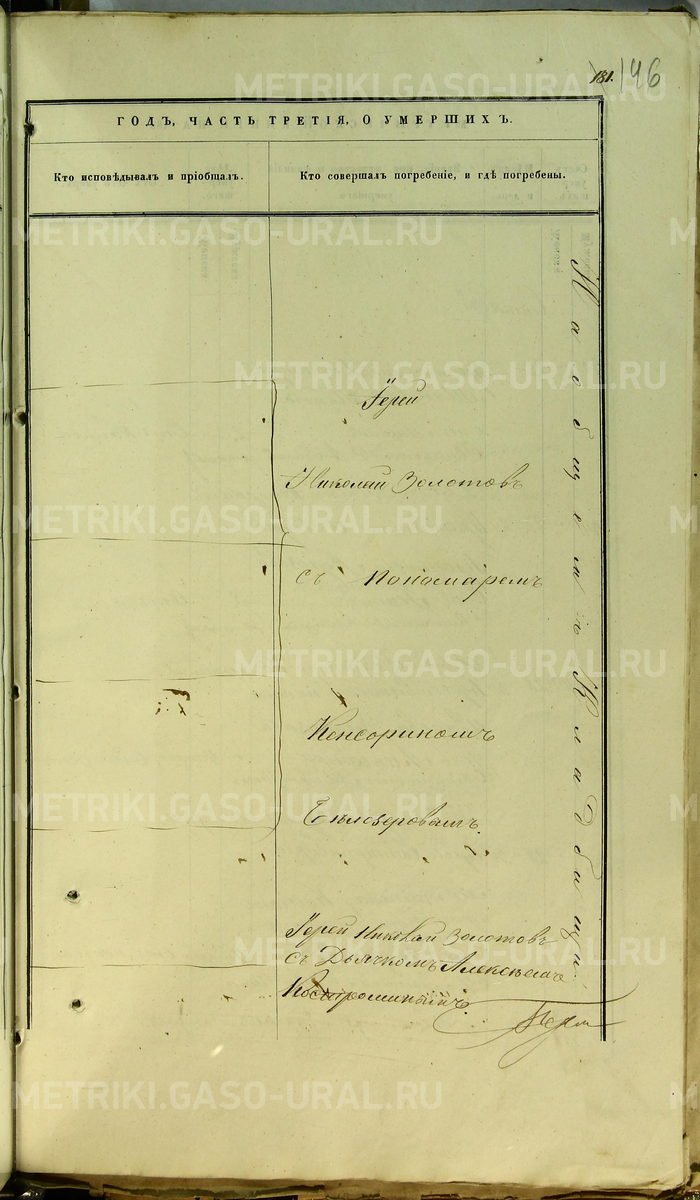 181. 146
ГОДЪ, ЧАСТЬ ТРЕТІЯ, О УМЕРШИХЪ.
Кто исповѣдывалъ и пріобщалъ.
Кто совершалъ погребеніе, и гдѣ погребены.
Іерей
Николай Золотовъ
съ пономаремъ
Кенсориномъ
Бѣлозеровымъ.
Іерей Николай Золотовъ
съ Дьячкомъ Алексѣемъ
Костроминымъ.
На общемъ Кладбищѣ.
METRIKI.GASO-URAL.RU
METRIKI.GASO-URAL.RU
METRIKI.GASO-URAL.RU
METRIKI.GASO-URAL.RU
METRIKI.GASO-URAL.RU
METRIKI.GASO-URAL.RU
METRIKI.GASO-URAL.RU
METRIKI.GASO-URAL.RU